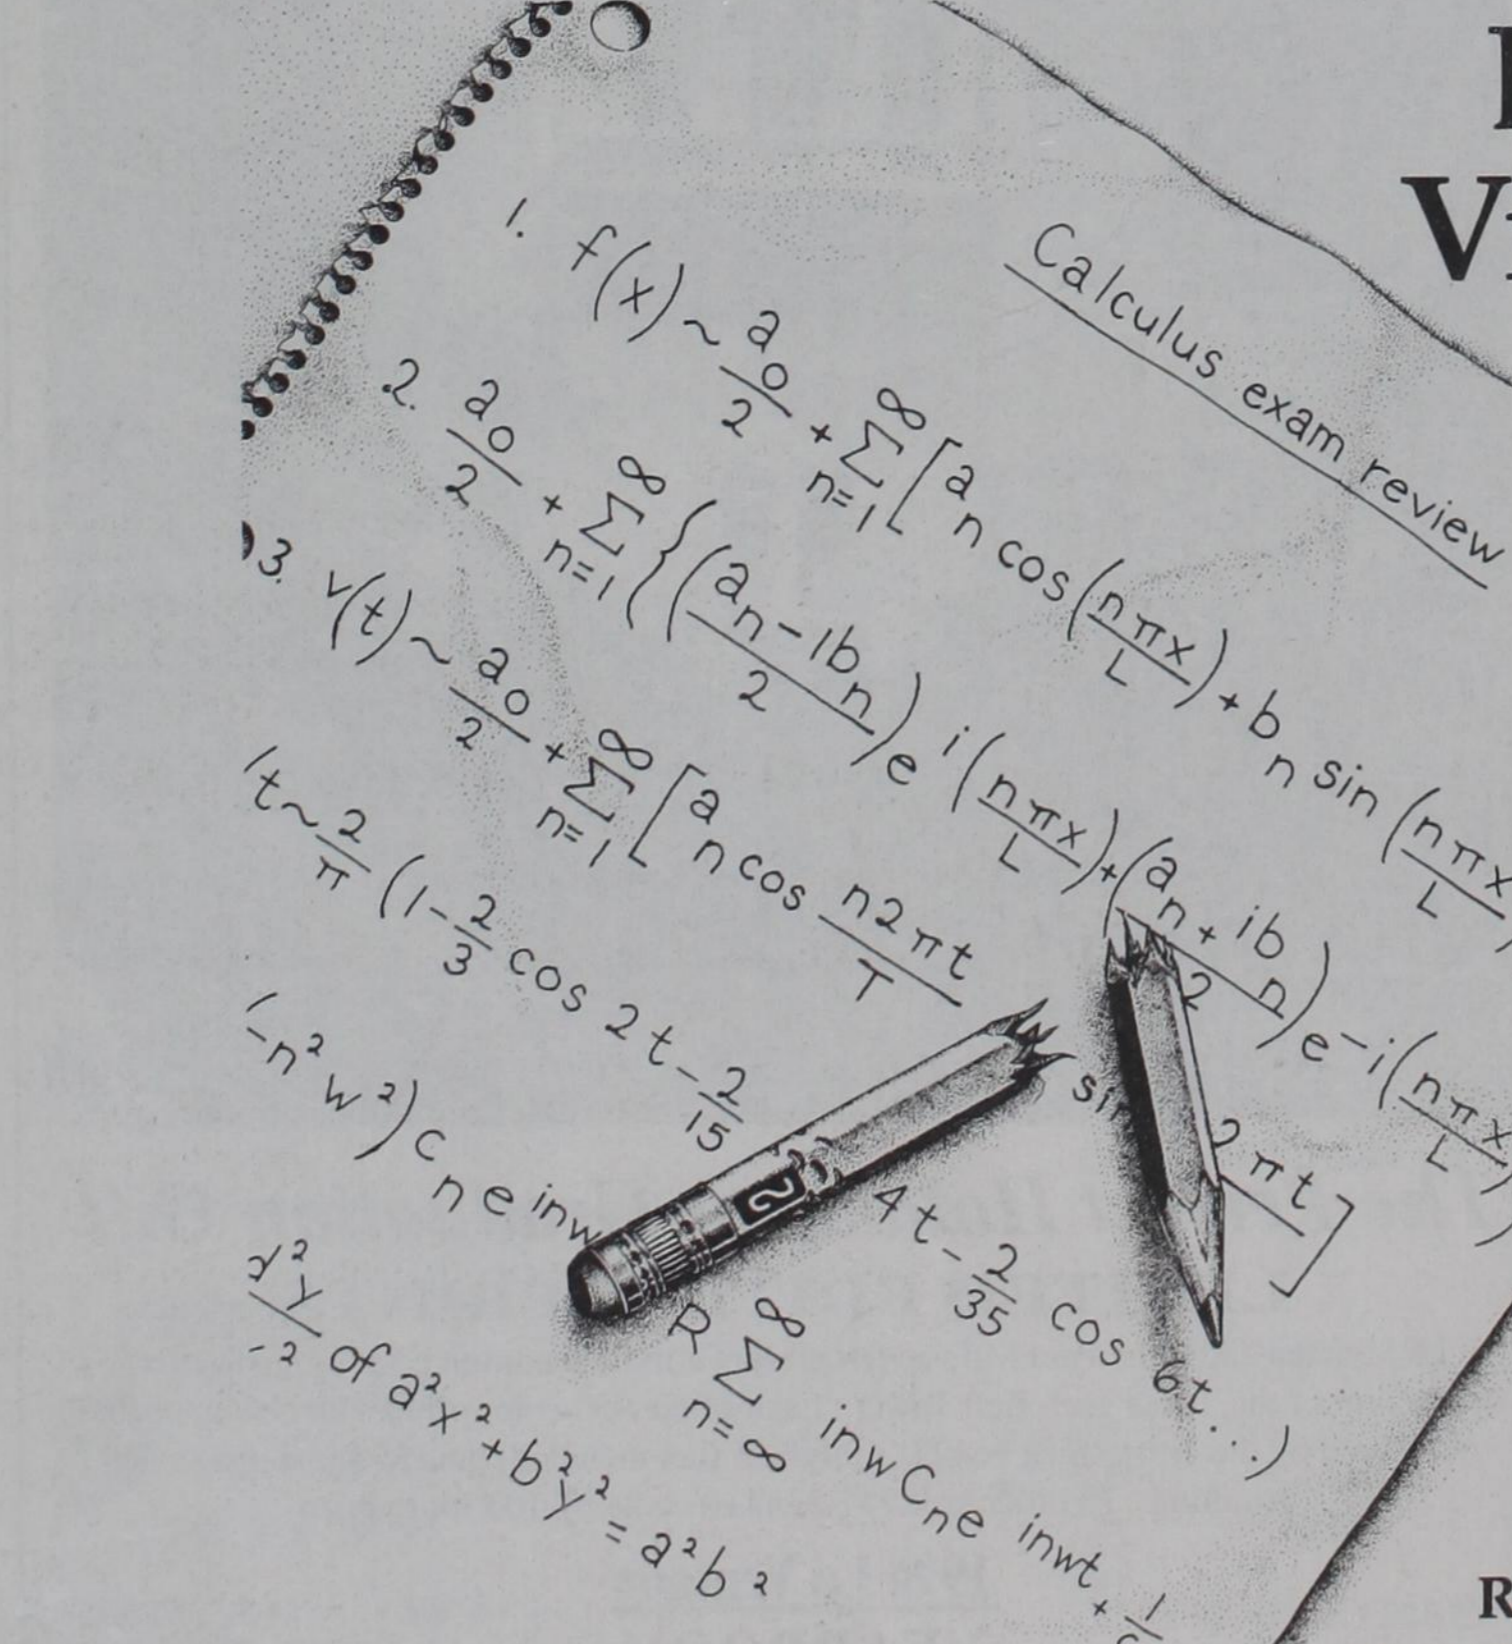 V
Calculus exam review
1. f(x) ~ a₀/2 + ∞ Σ n=1 [aₙ cos (nπx/L) + bₙ sin (nπx/L)
2. a₀/2 + ∞ Σ n=1 { (aₙ - 1bₙ/2) e i(nπx/L) + (aₙ + ibₙ/2) e -i(nπx/L)
3. v(t) ~ a₀/2 + ∞ Σ n=1 [aₙ cos n2πt/T 2πt]
t ~ 2/π (1 - 2/3 cos 2t - 2/15 4t - 2/35 cos 6t...)
-n²w²) cₙ e inw R ∞ Σ n=∞ inw Cₙe inwt + 1
²y/-2 of a²x² + b²y² = a²b²
2
R